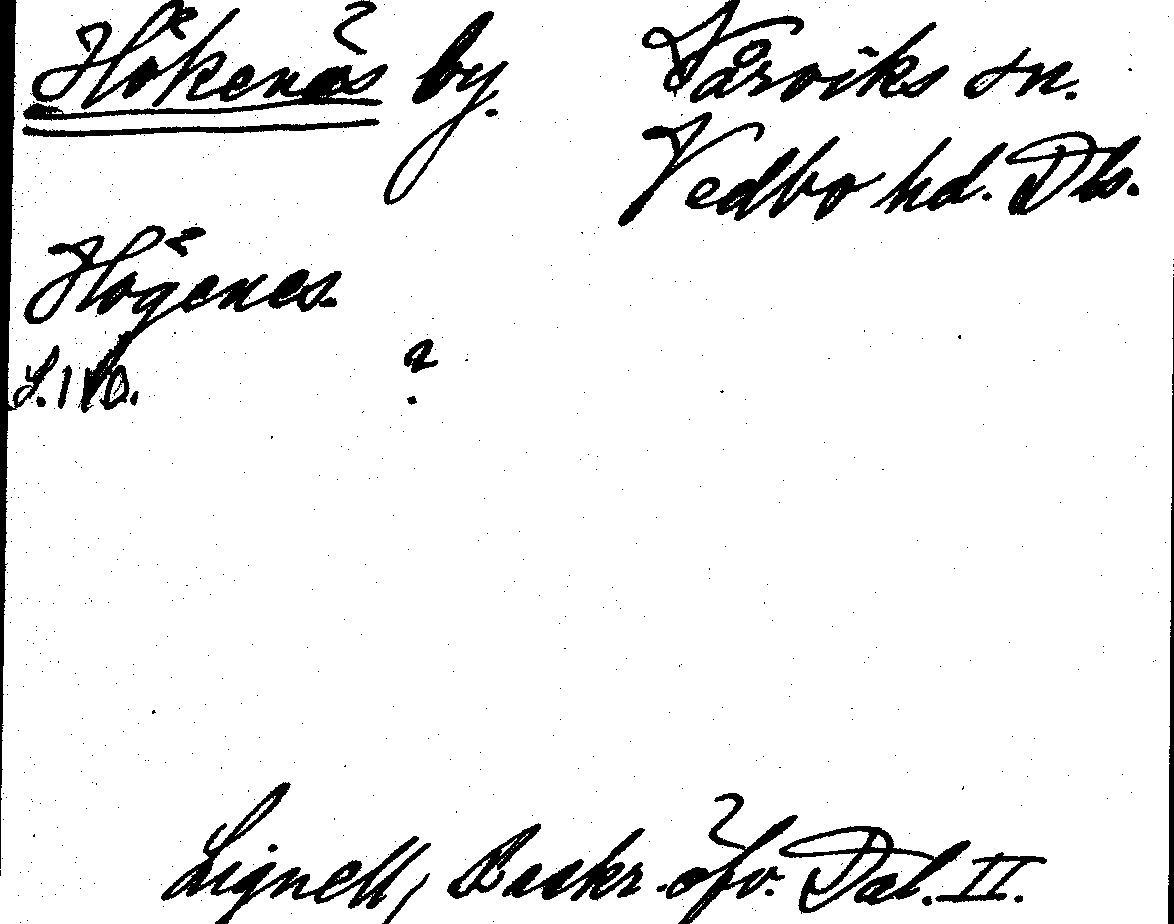 Hökenäs by.
Vårviks sn.
Vedbo hd. Dls.
Högenes.
S. 110.
?
Lignell, Beskr. öfv. Dal. II.